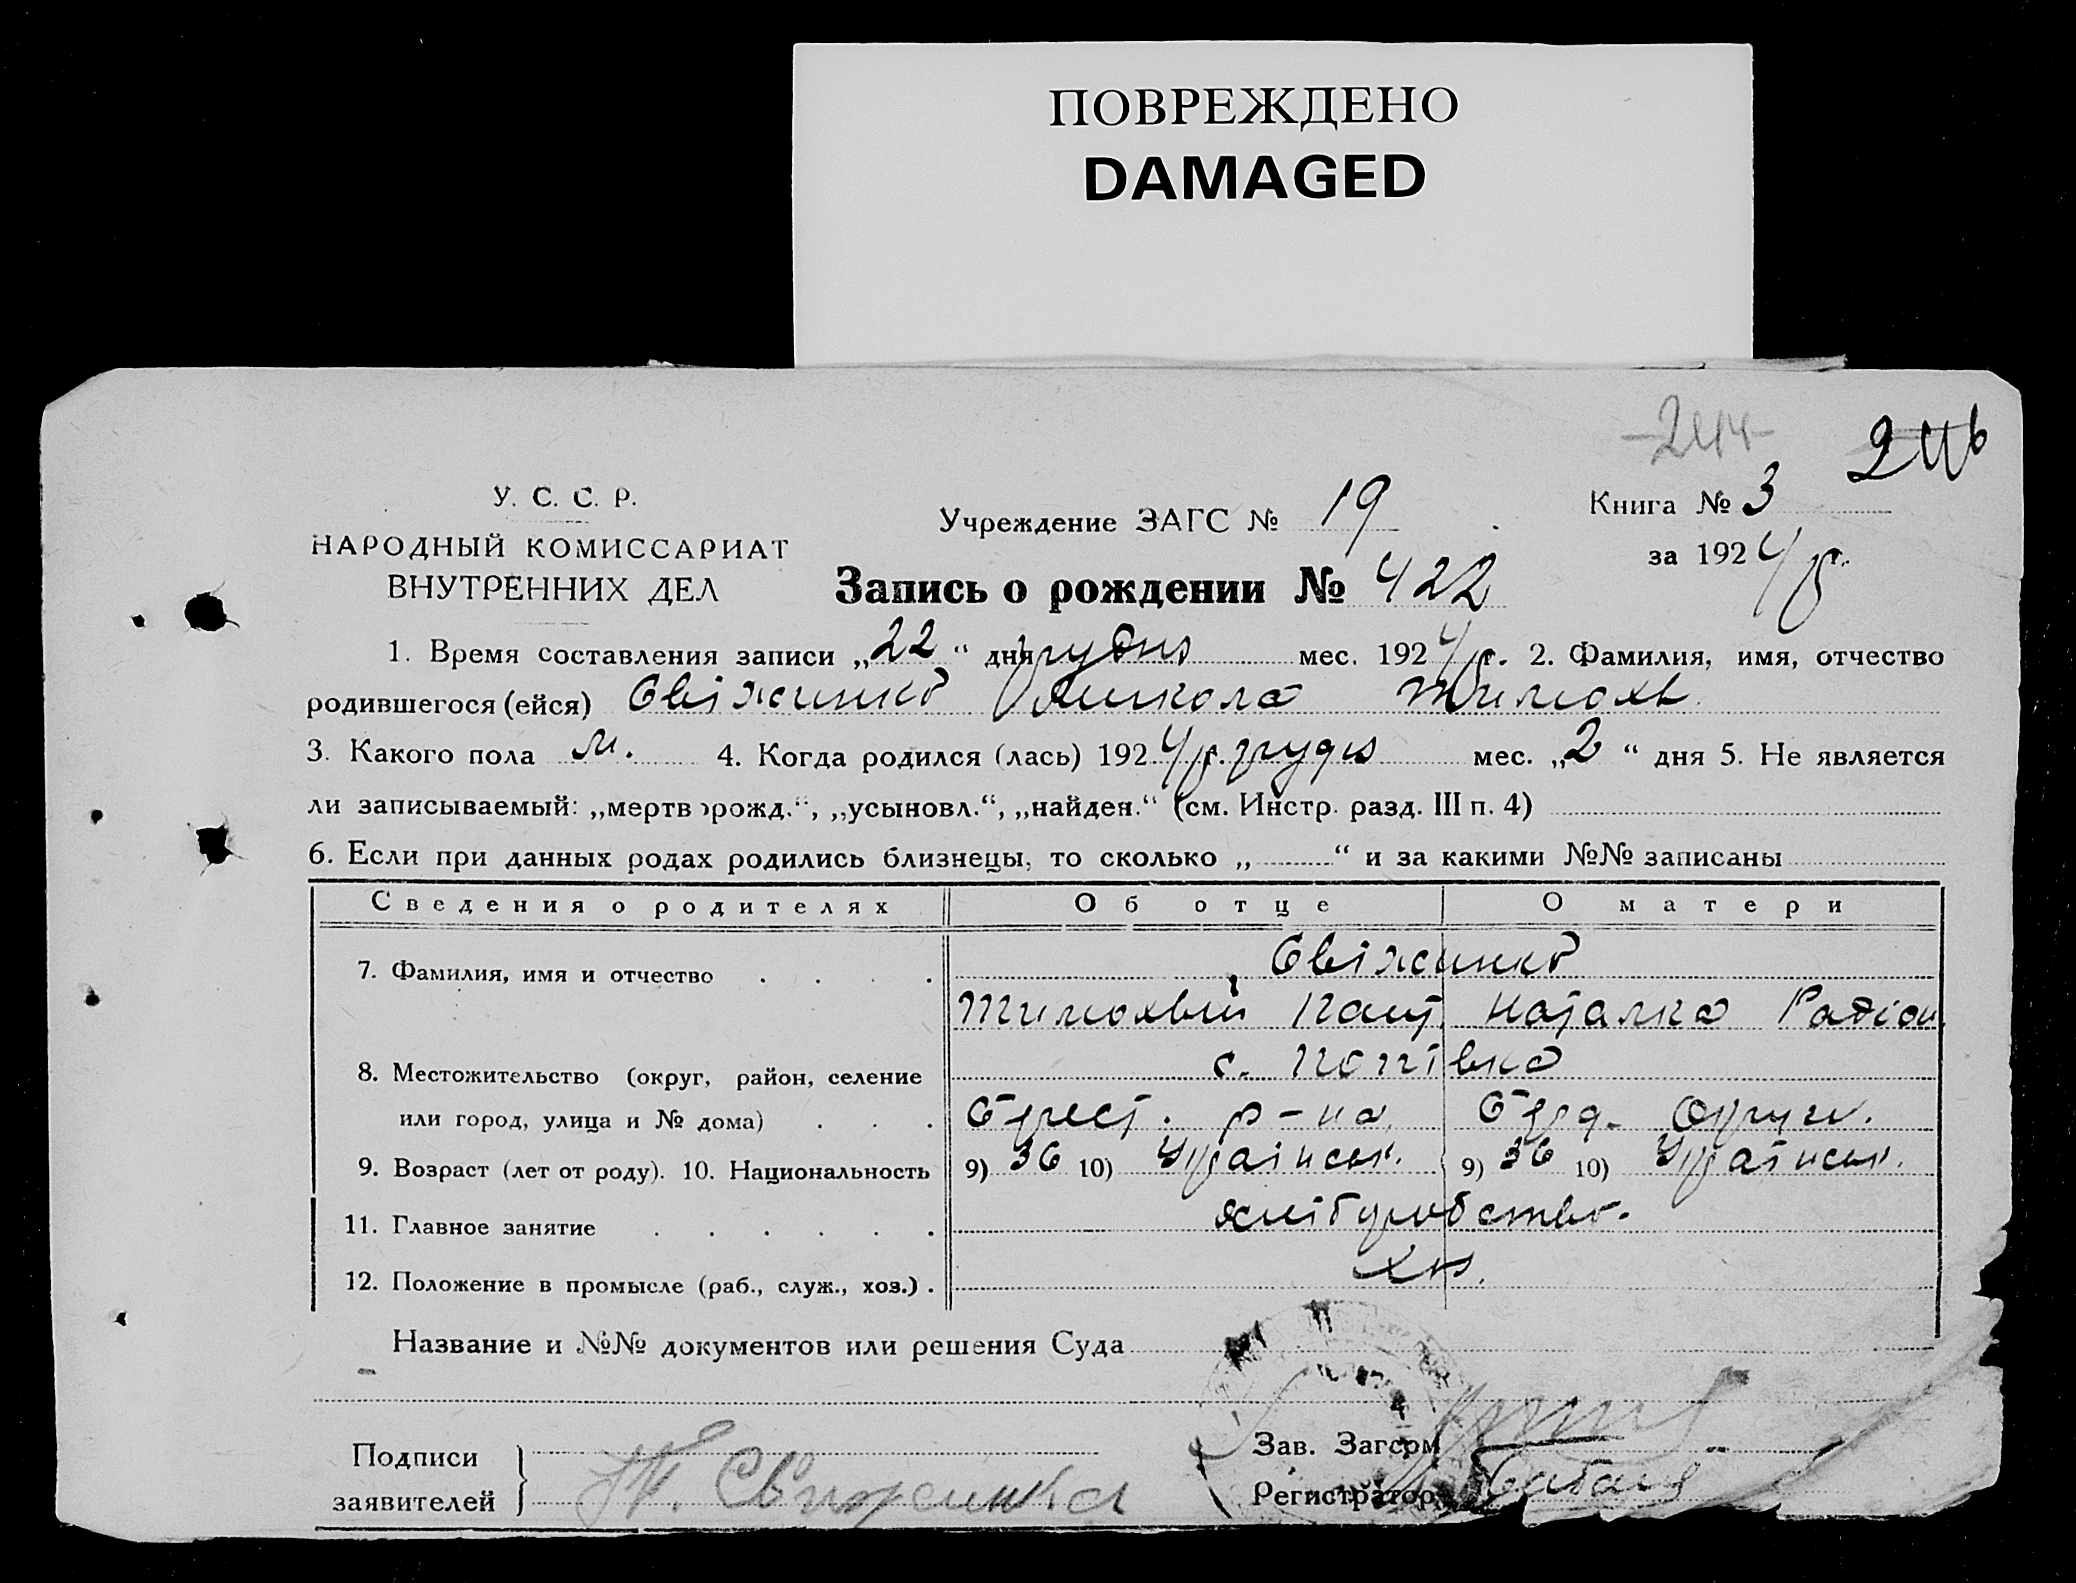 ПОВРЕЖДЕНО
DAMAGED
-244-
У. С. С. Р.
НАРОДНЫЙ КОМИССАРИАТ
ВНУТРЕННИХ ДЕЛ
Учреждение ЗАГС № 19
Книга № 3
за 1924 г.
Запись о рождении № 422
1. Время составления записи „22“ дня грудня мес. 1924 г. 2. Фамилия, имя, отчество
родившегося (ейся) Свіженко Микола Тимохв.
3. Какого пола м. 4. Когда родился (лась) 1924 г. грудня мес. „2“ дня 5. Не является
ли записываемый: „мертворожд.“, „усыновл.“, „найден.“ (см. Инстр. разд. III п. 4)
6. Если при данных родах родились близнецы, то сколько „ “ и за какими №№ записаны
Сведения о родителях Об отце О матери
7. Фамилия, имя и отчество Свіженко
Тимохвій Наталка Радіон.
8. Местожительство (округ, район, селение с. Попівка
или город, улица и № дома) р-на Округи.
9. Возраст (лет от роду). 10. Национальность 9) 36 10) Українськ. 9) 36 10) Українськ.
11. Главное занятие хліборобство.
12. Положение в промысле (раб., служ., хоз.) хоз.
Название и №№ документов или решения Суда
Подписи
заявителей Т. Свиженко
Зав. Загсом
Регистратор